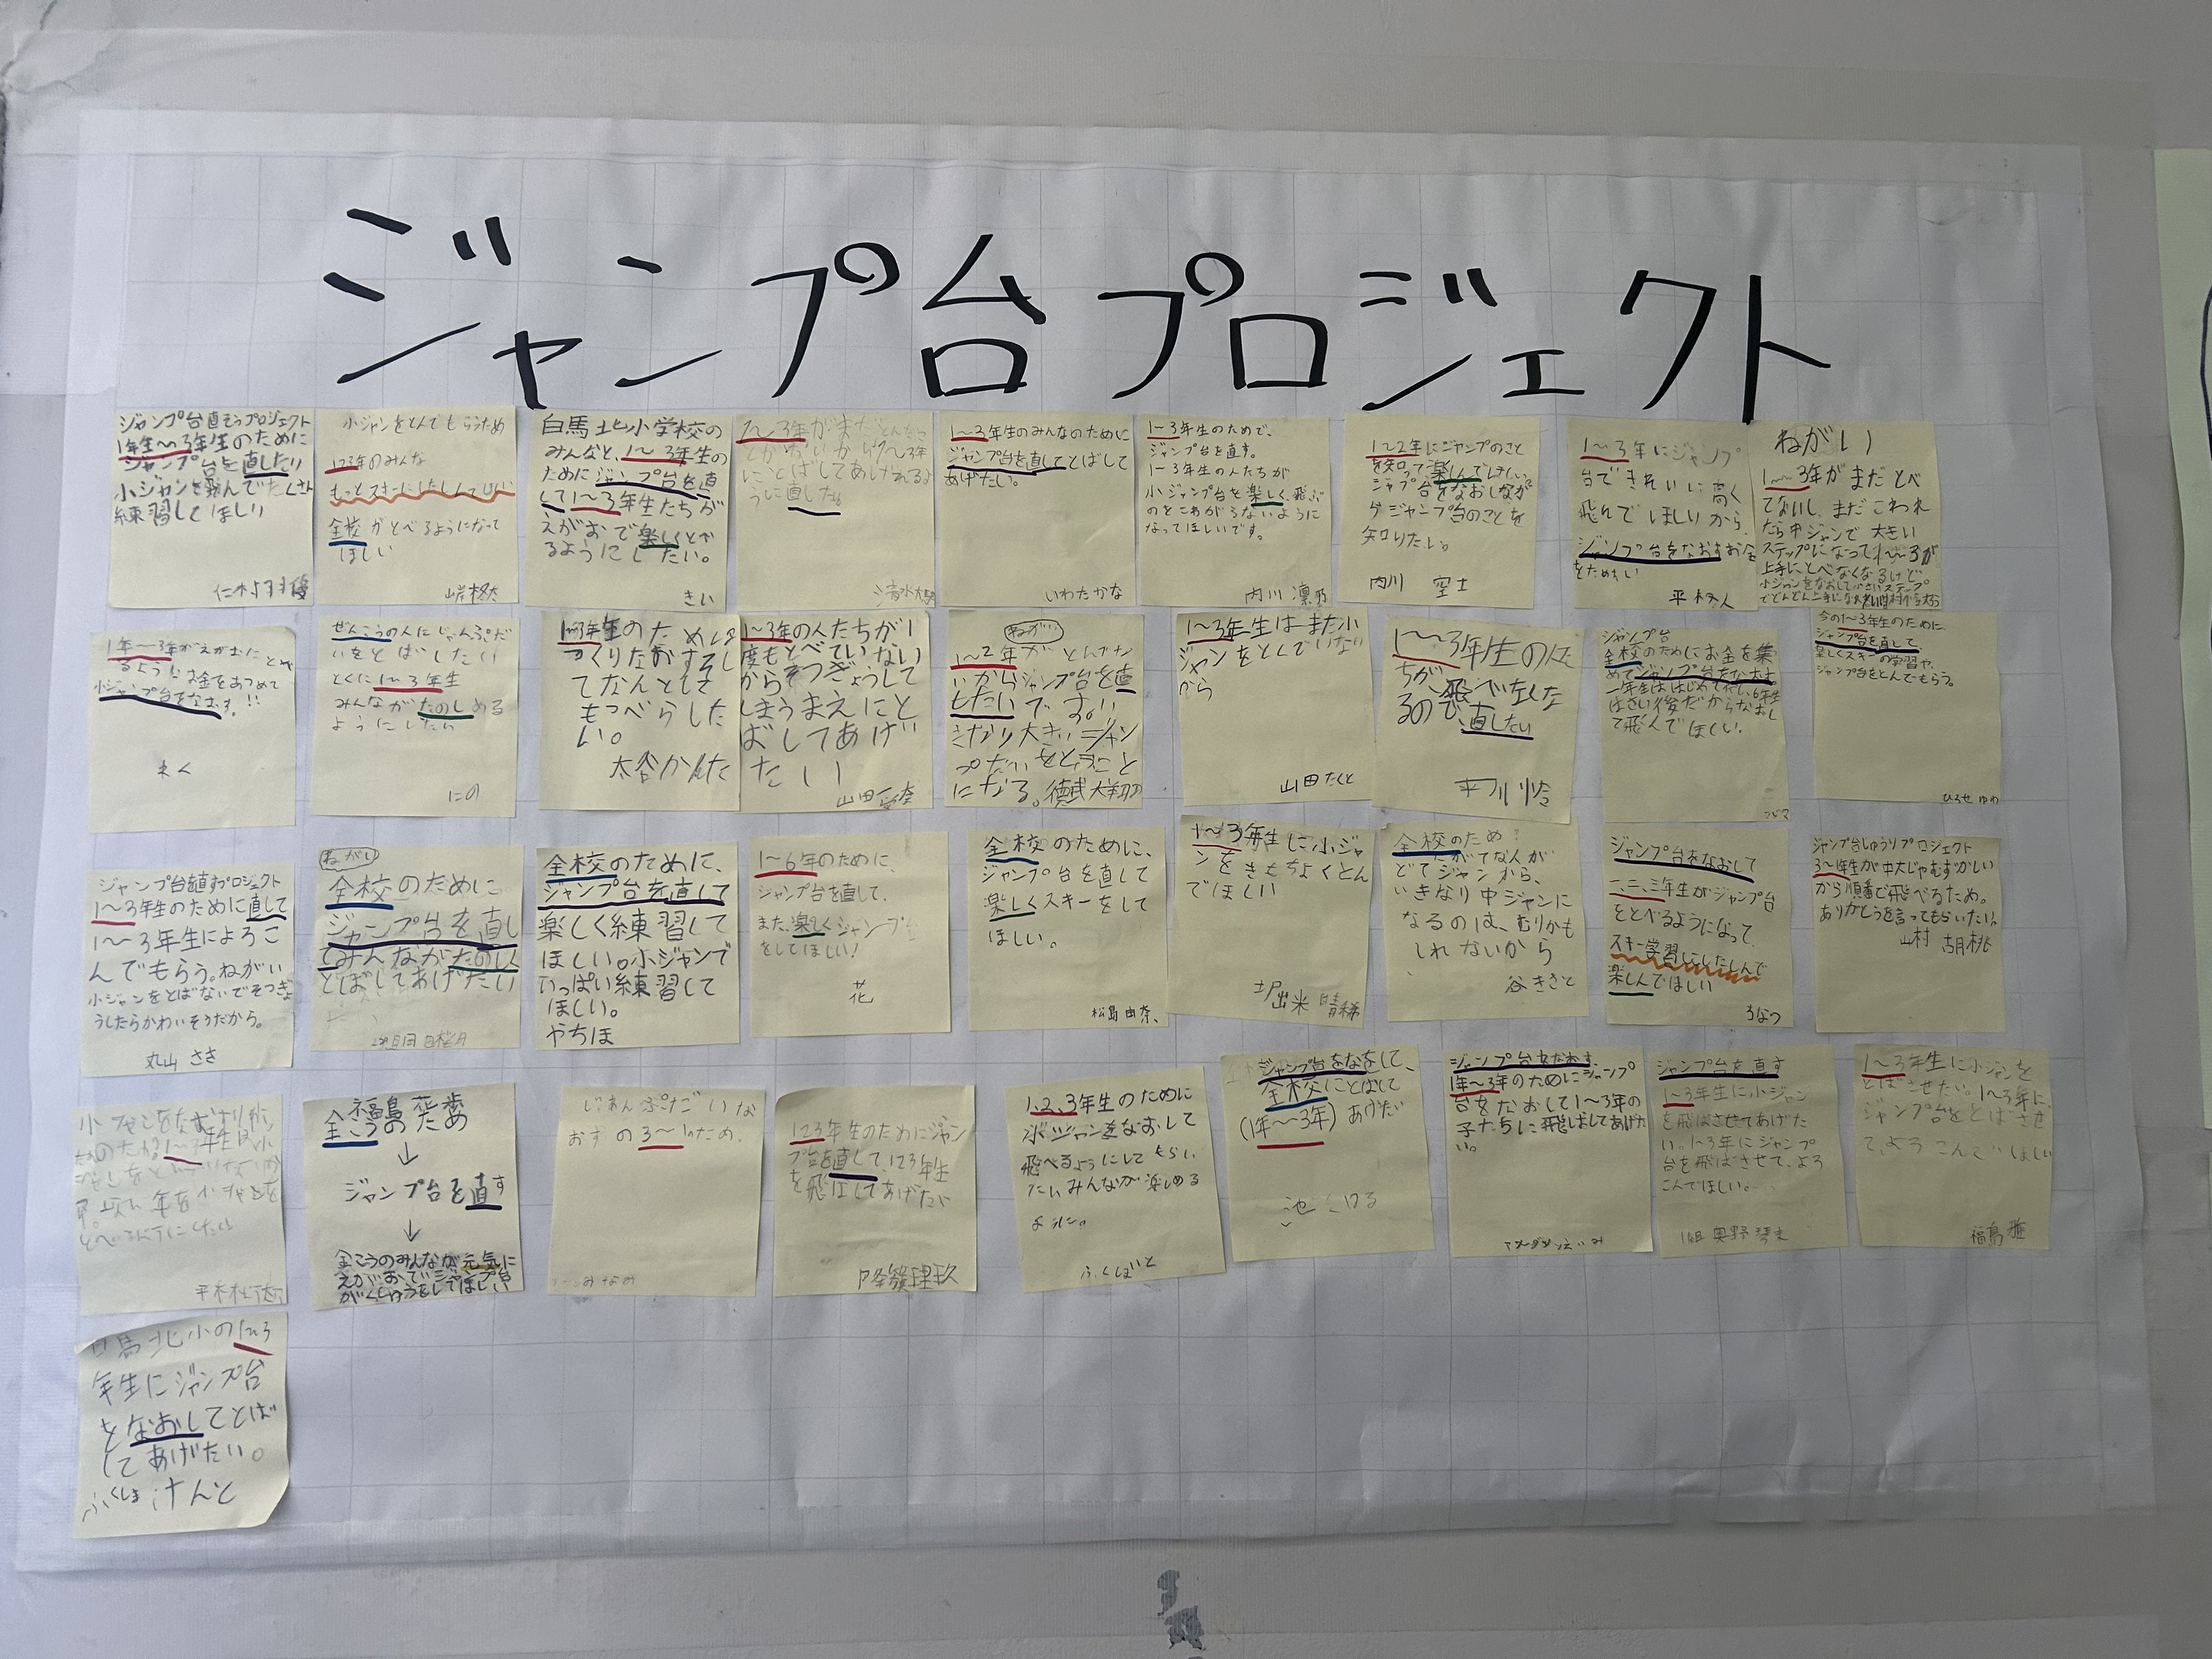 ジャンプ台プロジェクト
ジャンプ台直そうプロジェクト
1年生〜3年生のために
ジャンプ台を直したい
小ジャンを飛んでたくさん
練習してほしい
小ジャンをとんでもらうため
123年のみんな
もっとスキーにしたしんでほしい
全校がとべるようになって
ほしい
白馬北小学校の
みんなと、1〜3年生の
ためにジャンプ台を直
して1〜3年生たちが
えがおで楽しくとべ
るようにしたい。
きい
1〜3年がまだとんだこ
とがないから1〜3年
にとばしてあげれるよ
うに直したい。
1〜3年生のみんなのために
ジャンプ台を直してとばして
あげたい。
いわたかな
1〜3年生のためで、
ジャンプ台を直す。
1〜3年生の人たちが
小ジャンプ台を楽しく、飛ぶ
のをこわがらないように
なってほしいです。
内川 凛乃
1〜2年にジャンプのこと
を知って楽しんでほしい。
ジャンプ台をなおしなが
らジャンプ台のことを
知りたい。
内川 空士
1〜3年にジャンプ
台できれいに高く
飛んでほしいから
ジャンプ台をなおすお金
をためたい
ねがい
1〜3年がまだとべ
てないし、まだこわれ
たら中ジャンで大きい
ステップになって1〜3が
上手にとべなくなるけど
1年〜3年がえがおでとべ
るようにお金をあつめて
小ジャンプ台をなおす。!!
れく
ぜんこうの人にじゃんぷだ
いをとばしたい
とくに1〜3年生
みんながたのしめる
ようにしたい
にの
1〜3年生のため
つくりなおすそし
てなんとしても
もっべらした
い。
太谷かんた
1〜3年の人たちが1
度もとべていない
からそつぎょうして
しまうまえにと
ばしてあげ
たい
ねがい
1〜2年がとんでな
いからジャンプ台を直
したいです。い
きなり大きいジャン
プだいをとぶこと
になる。徳武大翔
1〜3年生はまだ小
ジャンをとんでいない
から
山田たくと
1〜3年生の人た
ちが、飛べなくな
るので直したい
平川怜
ジャンプ台
全校のためにお金を集
めてジャンプ台をなおす。
一年生ははじめてだし、6年生
はさい後だからなおし
て飛んでほしい。
今の1〜3年生のために
ジャンプ台を直して、
楽しくスキーの学習や、
ジャンプ台をとんでもらう。
ひろせ ゆわ
ジャンプ台を直すプロジェクト
1〜3年生のために直して
1〜3年生によろこ
んでもらう。ねがい
小ジャンをとばないでそつぎょ
うしたらかわいそうだから。
丸山 さき
ねがい
全校のために
ジャンプ台を直し
てみんながたのしく
とばしてあげたい
全校のために、
ジャンプ台を直して
楽しく練習して
ほしい。小ジャンで
いっぱい練習して
ほしい。
やちほ
1〜6年のために、
ジャンプ台を直して、
また、楽しくジャンプを
をしてほしい!
花
全校のために、
ジャンプ台を直して
楽しくスキーをして
ほしい。
松島由奈
1〜3年生に小ジャ
ンをきもちよくとん
でほしい
全校のため
にがてな人が
でてジャンから、
いきなり中ジャンに
なるのは、むりかも
しれないから
谷ききと
ジャンプ台をなおして
一、二、三年生がジャンプ台
をとべるようになって、
スキー学習にしたしんで
楽しんでほしい
ろなつ
ジャンプ台しゅうりプロジェクト
3〜1年生が中大じゃむずかしい
から順番で飛べるため。
ありがとうを言ってもらいたい。
山村 胡桃
福島花歩
全こうのため
↓
ジャンプ台を直す
↓
全こうのみんなが元気に
えがおでジャンプ台
がくしゅうをしてほしい
じゃんぷだいな
おすの3〜1のため.
みなみ
123年生のためにジャン
プ台を直して、123年生
を飛ばしてあげたい
1、2、3年生のために
小ジャンをなおして
飛べるようにしてもらい
たい。みんなが楽しめる
ように。
ジャンプ台をなをして、
全校にとばして
(1年〜3年)あげたい
ジャンプ台をなおす。
1年〜3年のためにジャンプ
台をなおして1〜3年の
子たちに飛ばしてあげた
い。
ジャンプ台を直す
1〜3年生に小ジャン
を飛ばさせてあげた
い。1〜3年にジャンプ
台を飛ばさせて、よろ
こんでほしい。
1組 奥野
1〜3年生に小ジャンを
とばさせたい。1〜3年に、
ジャンプ台をとばさせ
て、よろこんでほしい
福島雅
白馬北小の1〜3
年生にジャンプ台
をなおしてとば
してあげたい。
ふくしまけんと